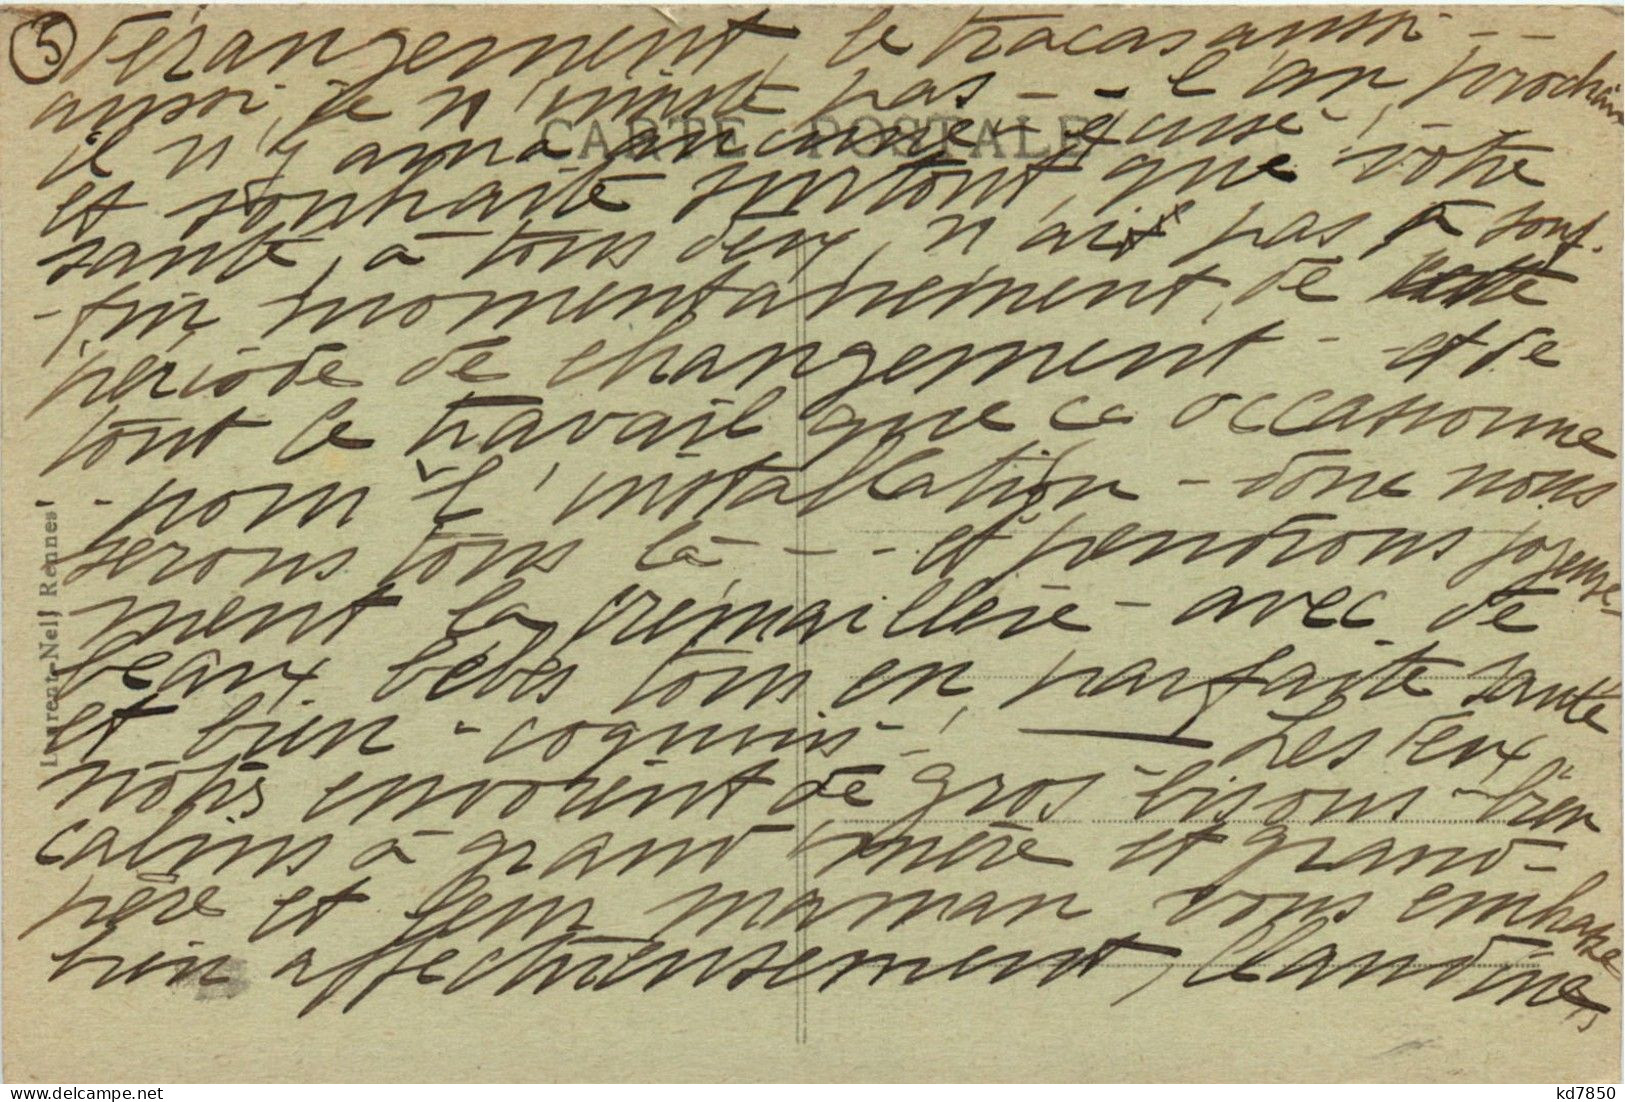 5 dérangement, le tracas aussi - -
aussi, je n'insiste pas - - l'an prochain
CARTE POSTALE
il n'y aura aucune excuse,
et souhaite surtout que votre
santé, à tous deux, n'ai pas à souf-
-frir momentanément, de cette
période de changement - - et de
tout le travail que ce occasionne
- pour l'installation - donc nous
serons tous là - - - et pendrons joyeuse-
ment la crémaillère - avec de
beaux bébés tous en parfaite santé
et bien - coquins - ! Les deux
nôtres envoient de gros bisous - bien
calins à grand mère et grand-
père et leur maman vous embrasse
bien affectueusement, Claudine,
Laurent-Nel, Rennes
kd7850